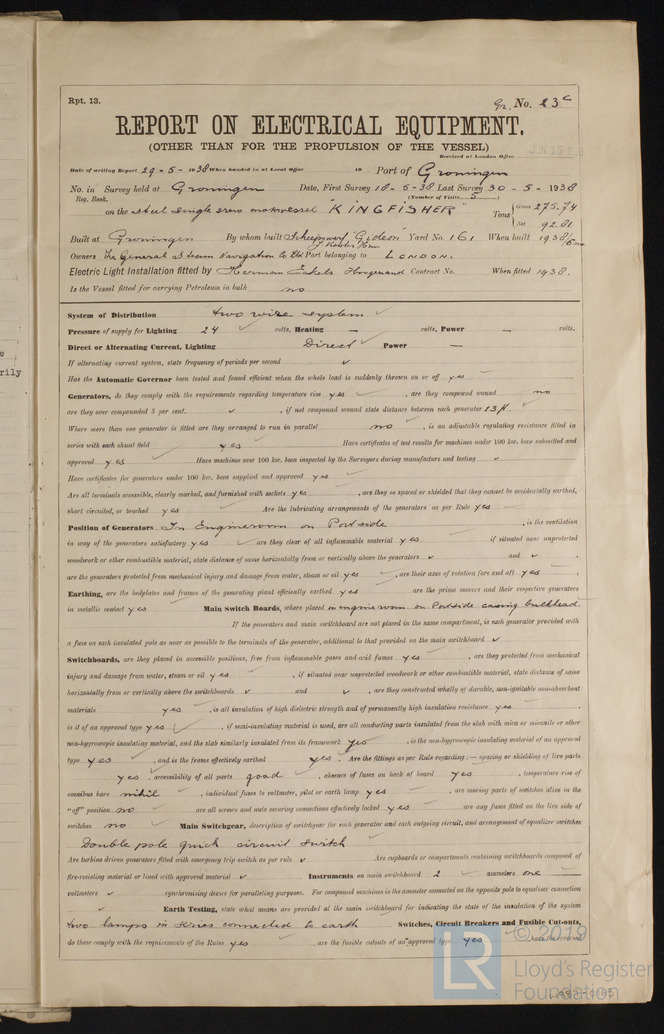 Rpt. 13.
Gr. No. 23c
REPORT ON ELECTRICAL EQUIPMENT.
(OTHER THAN FOR THE PROPULSION OF THE VESSEL)
Received at London Office
Date of writing Report 29-5-1938 When handed in at Local Office 19 Port of Groningen
No. in Survey held at Groningen Date, First Survey 18-5-38 Last Survey 30-5-1938
Reg. Book. (Number of Visits 5)
on the steel single screw motorvessel "KINGFISHER" Tons { Gross 275.74
Net 92.81
Built at Groningen By whom built Scheepswerf "Gideon" Yard No. 161 When built 1938/5mo
J. Koster Hzn
Owners The General Steam Navigation Co Ltd Port belonging to LONDON.
Electric Light Installation fitted by Herman Eekels Hoogezand Contract No. When fitted 1938.
Is the Vessel fitted for carrying Petroleum in bulk no
System of Distribution two wire system ✓
Pressure of supply for Lighting 24 volts, Heating — volts, Power — volts.
Direct or Alternating Current, Lighting Direct Power —
If alternating current system, state frequency of periods per second ✓
Has the Automatic Governor been tested and found efficient when the whole load is suddenly thrown on or off yes
Generators, do they comply with the requirements regarding temperature rise yes, are they compound wound no
are they over compounded 5 per cent. ✓, if not compound wound state distance between each generator 13ft.
Where more than one generator is fitted are they arranged to run in parallel no, is an adjustable regulating resistance fitted in
series with each shunt field yes Have certificates of test results for machines under 100 kw. been submitted and
approved yes Have machines over 100 kw. been inspected by the Surveyors during manufacture and testing ✓
Have certificates for generators under 100 kw. been supplied and approved yes
Are all terminals accessible, clearly marked, and furnished with sockets yes, are they so spaced or shielded that they cannot be accidentally earthed,
short circuited, or touched yes Are the lubricating arrangements of the generators as per Rule yes
Position of Generators In Engineroom on Portside, is the ventilation
in way of the generators satisfactory yes are they clear of all inflammable material yes if situated near unprotected
woodwork or other combustible material, state distance of same horizontally from or vertically above the generators ✓ and ✓,
are the generators protected from mechanical injury and damage from water, steam or oil yes, are their axes of rotation fore and aft yes
Earthing, are the bedplates and frames of the generating plant efficiently earthed yes are the prime movers and their respective generators
in metallic contact yes Main Switch Boards, where placed in engineroom on Portside casing bulkhead.
If the generators and main switchboard are not placed in the same compartment, is each generator provided with
a fuse on each insulated pole as near as possible to the terminals of the generator, additional to that provided on the main switchboard ✓
Switchboards, are they placed in accessible positions, free from inflammable gases and acid fumes yes, are they protected from mechanical
injury and damage from water, steam or oil yes, if situated near unprotected woodwork or other combustible material, state distance of same
horizontally from or vertically above the switchboards ✓ and ✓, are they constructed wholly of durable, non-ignitable non-absorbent
materials yes, is all insulation of high dielectric strength and of permanently high insulation resistance yes
is it of an approved type yes, if semi-insulating material is used, are all conducting parts insulated from the slab with mica or micanite or other
non-hygroscopic insulating material, and the slab similarly insulated from its framework yes, is the non-hygroscopic insulating material of an approved
type yes, and is the frame effectively earthed yes. Are the fittings as per Rule regarding:— spacing or shielding of live parts
yes, accessibility of all parts good, absence of fuses on back of board yes, temperature rise of
omnibus bars nihil, individual fuses to voltmeter, pilot or earth lamp yes, are moving parts of switches alive in the
"off" position no are all screws and nuts securing connections effectively locked yes are any fuses fitted on the live side of
switches no Main Switchgear, description of switchgear for each generator and each outgoing circuit, and arrangement of equalizer switches
Double pole quick circuit switch
Are turbine driven generators fitted with emergency trip switch as per rule ✓ Are cupboards or compartments containing switchboards composed of
fire-resisting material or lined with approved material ✓ Instruments on main switchboard 2 ammeters one
voltmeters ✓ synchronising device for paralleling purposes. For compound machines is the ammeter connected on the opposite pole to equaliser connection
✓ Earth Testing, state what means are provided at the main switchboard for indicating the state of the insulation of the system
two lamps in series connected to earth Switches, Circuit Breakers and Fusible Cut-outs,
do these comply with the requirements of the Rules yes, are the fusible cutouts of an approved type yes
rily
© 2019
LR
Lloyd's Register
Foundation